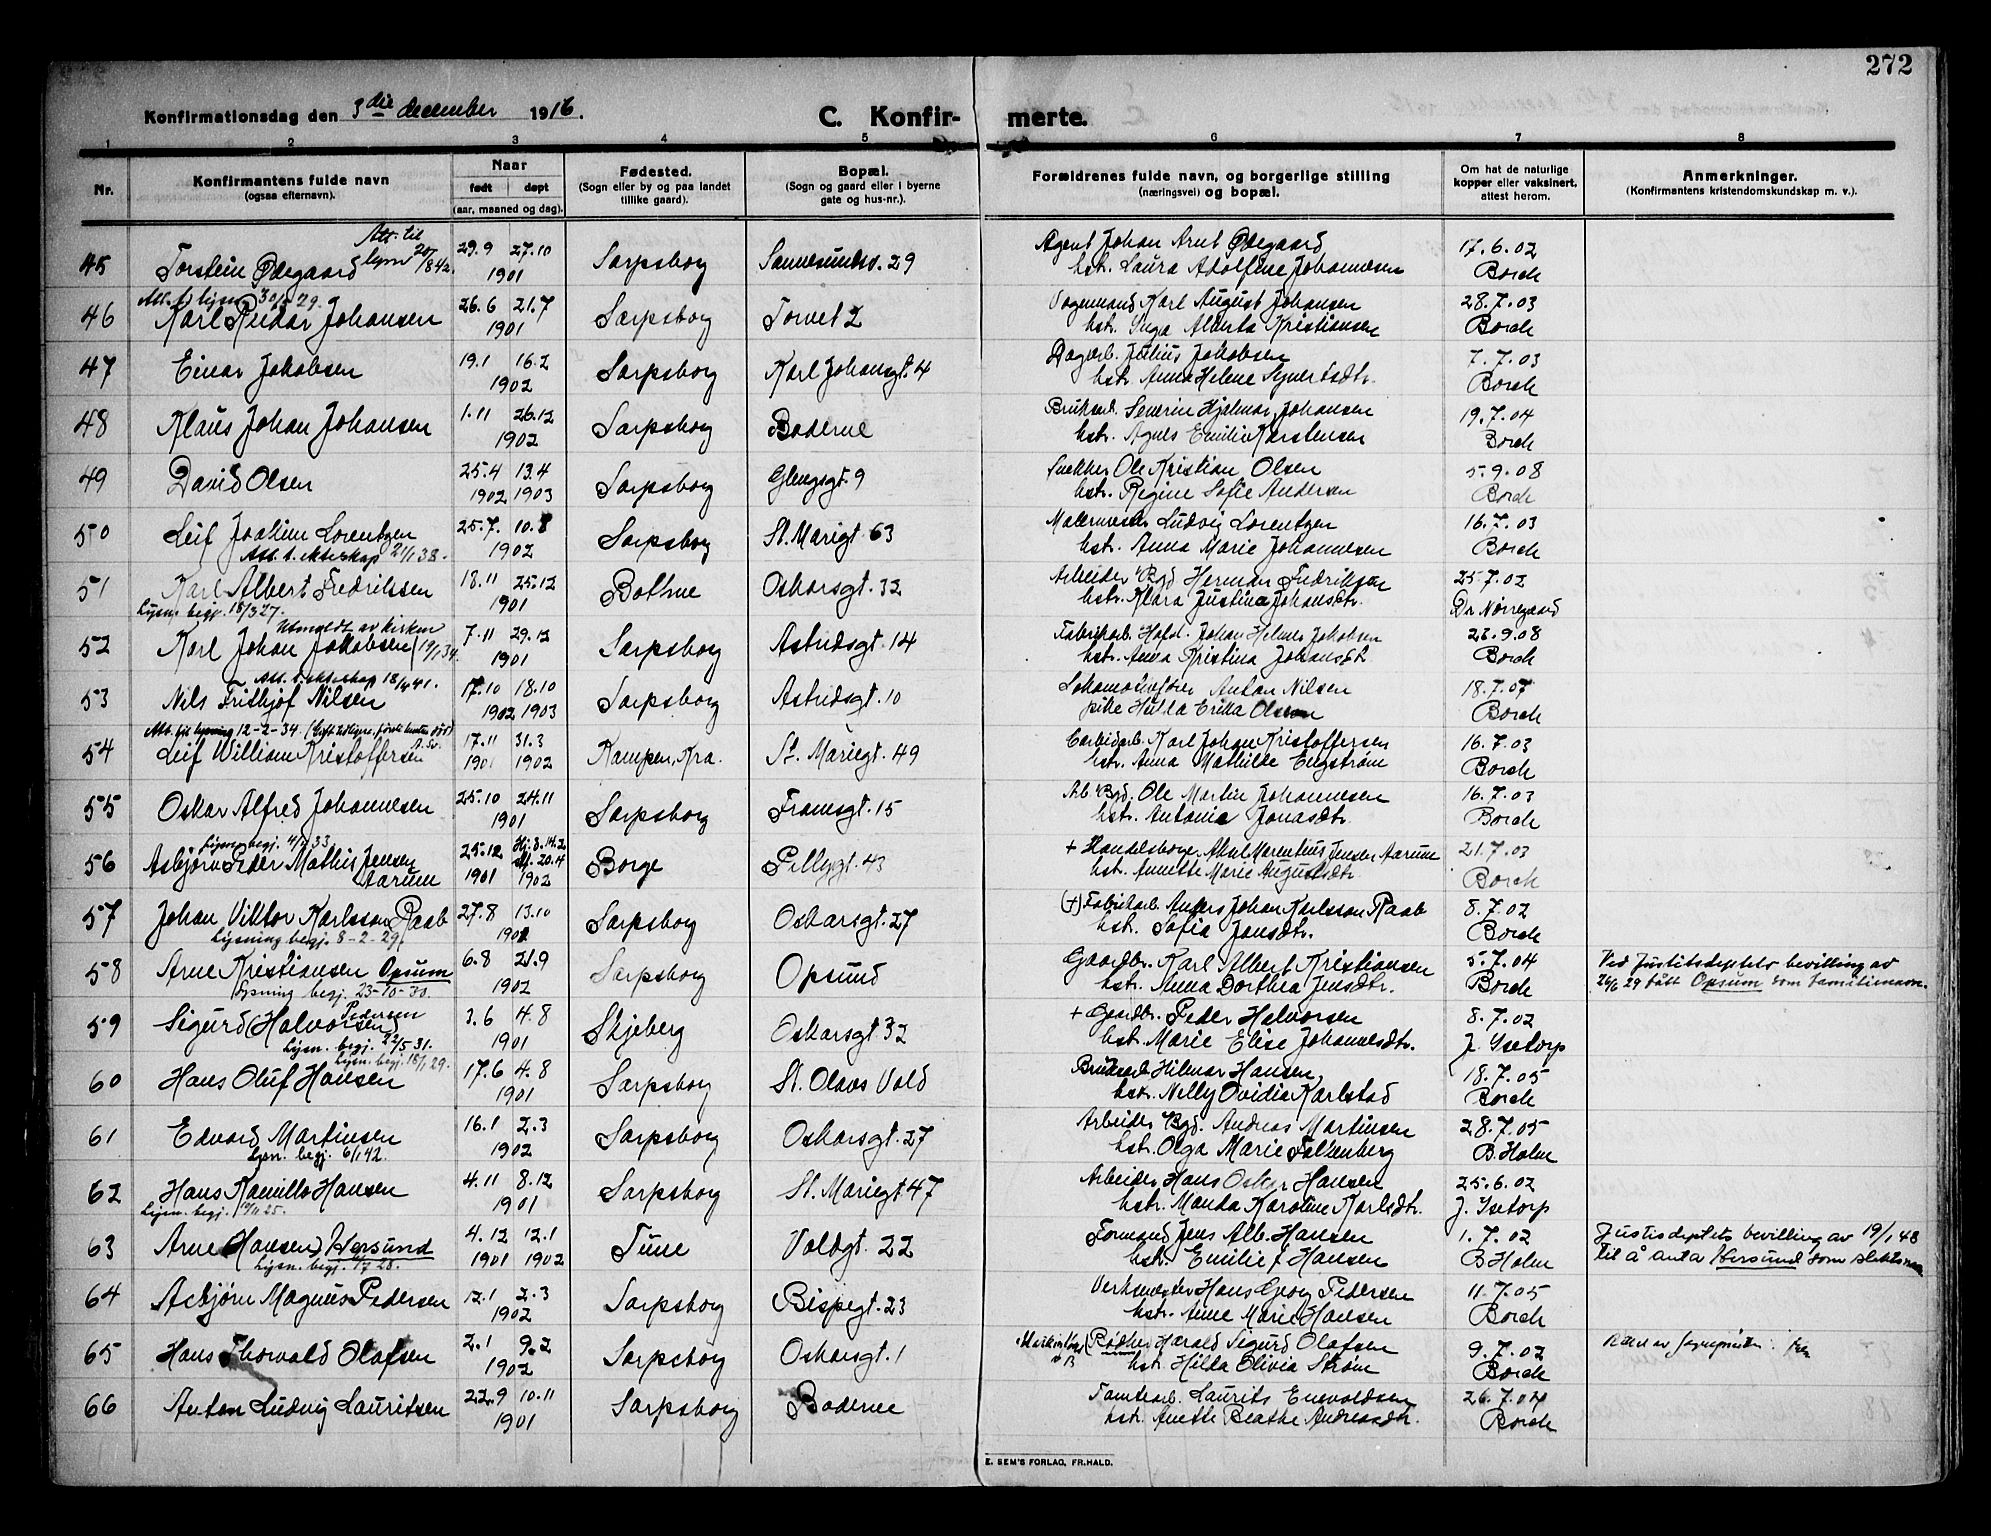 272
Konfirmationsdag den 3die december 1916.
C. Konfir- merte.
1 2 3 4 5 6 7 8
Nr.
Konfirmantens fulde navn
(ogsaa efternavn).
Naar
født døpt
(aar, maaned og dag).
Fødested.
(Sogn eller by og paa landet
tillike gaard).
Bopæl.
(Sogn og gaard eller i byerne
gate og hus-nr.).
Forældrenes fulde navn, og borgerlige stilling
(næringsvei) og bopæl.
Om hat de naturlige
kopper eller vaksinert,
attest herom.
Anmerkninger.
(Konfirmantens kristendomskundskap m. v.).
Att. til
lysn 20/8 42.
45 Torstein Ødegaard 29.9 27.10 Sarpsborg Sannesundsv. 29 Agent Johan Arnt Ødegaard 17.6.02
1901 hstr. Laura Adolfine Johannesen Borch
Att. t. lysn. 29.
46 Karl Reidar Johansen 26.6 21.7 Sarpsborg Torvet 2 Vognmand Karl August Johansen 28.7.03
1901 hstr. Inga Kristiansen Borch
47 Einar Jakobsen 19.1 16.2 Sarpsborg Karl Johansgt. 4 Dagarb. Julius Jakobsen 7.7.03
1902 hstr. Anna Helene Syvertsdtr. Borch
48 Klaus Johan Johansen 1.11 26.12 Sarpsborg Boderne Bruksarb. Severin Hjalmar Johansen 19.7.04
1902 hstr. Agnes Emilie Karstensen Borch
49 David Olsen 25.4 13.4 Sarpsborg Glengsgt. 9 Snekker Ole Kristian Olsen 5.9.08
1902 1903 hstr. Regine Sofie Andersen Borch
50 Leif Joakim Lorentzen 25.7. 10.8 Sarpsborg St. Mariegt. 63 Malermester Ludvig Lorentzen 16.7.03
Att. t. ekteskap 21/1 38. 1902 hstr. Anna Marie Johannesen Borch
51 Karl Albert Fredriksen 18.11 25.12 Bothne Oskarsgt. 32 Arbeider Bgd Herman Fredriksen 25.7.02
Lysn. begj. 18/3 27. 1901 hstr. Klara Justina Johansdtr. Dr Nørregaard
Utmeldt av kirken
52 Karl Johan Jakobsen (19/1 34. 7.11 29.12 Sarpsborg Astridsgt. 14 Fabrikarb. Johan Helmer Jakobsen 9.08
1901 hstr. Anna Kristina Johansdtr. Borch
Att. t. ekteskap 18/4 41.
53 Nils Fridtjof Nilsen 17.10 18.10 Sarpsborg Astridsgt. 10 Lokomotivfører Anton Nilsen 18.7.07
1902 1903 pike Hulda Erika Olsen Borch
Att. til lysning 12-2-34 (Gift tidligere, første hustru død)
54 Leif William Kristoffersen 17.11 31.3 Kampen, Kra. St. Mariegt. 49 Carbidarb. Karl Johan Kristoffersen 16.7.03
1901 1902 hstr. Anna Mathilde Engstrøm Borch
55 Oskar Alfred Johannesen 25.10 24.11 Sarpsborg Framsgt. 15 Arb. Bgd. Ole Martin Johannesen 16.7.03
1901 hstr. Antonie Jonasdtr. Borch
Lysn. begj. 33
56 Asbjørn Peder Mathis Jensen 25.12 Hj. d. 14.2 Borge Pellygt. 43 + Handelsborge. Aksel Marentius Jensen Aarum 21.7.03
Aarum 1901 20.4 1902 hst. Annette Marie Augustsdtr. Borch
57 Johan Viktor Karlsson Raab 27.8 13.10 Sarpsborg Oskarsgt. 27 (+) Fabrikarb. Anders Johan Karlsson Raab 8.7.02
Lysning begj. 8-2-29. 1901 hstr. Sofia Jonsdtr. Borch
58 Arne Kristiansen Opsum 6.8 21.9 Sarpsborg Opsund Gaardbr. Karl Albert Kristiansen 5.7.04 Ved Justitsdeptets bevilling av
Lysning begj. 23-10-30. 1902 hstr. Anna Dorthea Jensdtr. Borch 26/6 29 fått Opsum som familienavn.
Pedersen
59 Sigurd (Halvorsen) 3.6 4.8 Skjeberg Oskarsgt. 32 + Gaardbr. Peder Halvorsen 8.7.02
Lysn. begj. 22/5 31. 1901 hst. Marie Elise Johannesdtr. J. Isetorp
Lysn. begj. 18/1 29.
60 Hans Oluf Hansen 17.6 4.8 Sarpsborg St. Olavs Vold Bruksarb. Hilmar Hansen, 18.7.05
1901 hstr. Nelly Ovidia Karlstad Borch
61 Edvard Martinsen 16.1 2.3 Sarpsborg Oskarsgt. 27 Arbeider Bgd. Andreas Martinsen 28.7.05
Lysn. begj. 6/1 42. 1902 hst. Olga Marie Falkenberg B. Holm
62 Hans Kamillo Hansen 4.11 8.12 Sarpsborg St. Mariegt 47 Arbeider Hans Oskar Hansen 25.6.02
Lysn. begj. 25. 1901 hstr. Manda Karoline Karlsdtr. J. Isetorp
63 Arne (Hansen) Hersund 4.12 12.1 Tune Voldgt. 22 Formand Jens Alb. Hansen 1.7.02 Justisdeptets bevilling av 19/1 48
Lysn. begj. 28. 1901 1902 hst. Emilie f Hansen B Holm til å anta Hersund som slektsnavn
64 Asbjørn Magnus Pedersen 12.1 2.3 Sarpsborg Bispegt. 23 Verkmester Hans Georg Pedersen 11.7.05
1902 hstr. Anne Marie Hansen Borch
65 Hans Thorvald Olafsen 2.1 9.2 Sarpsborg Oskarsgt. 1 (Rødher Harald Sigurd Olafsen 9.7.02
1902 hst. Hilda Elivia Strøm Borch
66 Anton Ludvig Lauritsen 22.9 10.11 Sarpsborg Boderne Tomtearb. Laurits Enevoldsen 26.7.04
1901 hstr. Anette Beathe Andreasdtr. Borch
E. SEM'S FORLAG, FR.HALD.